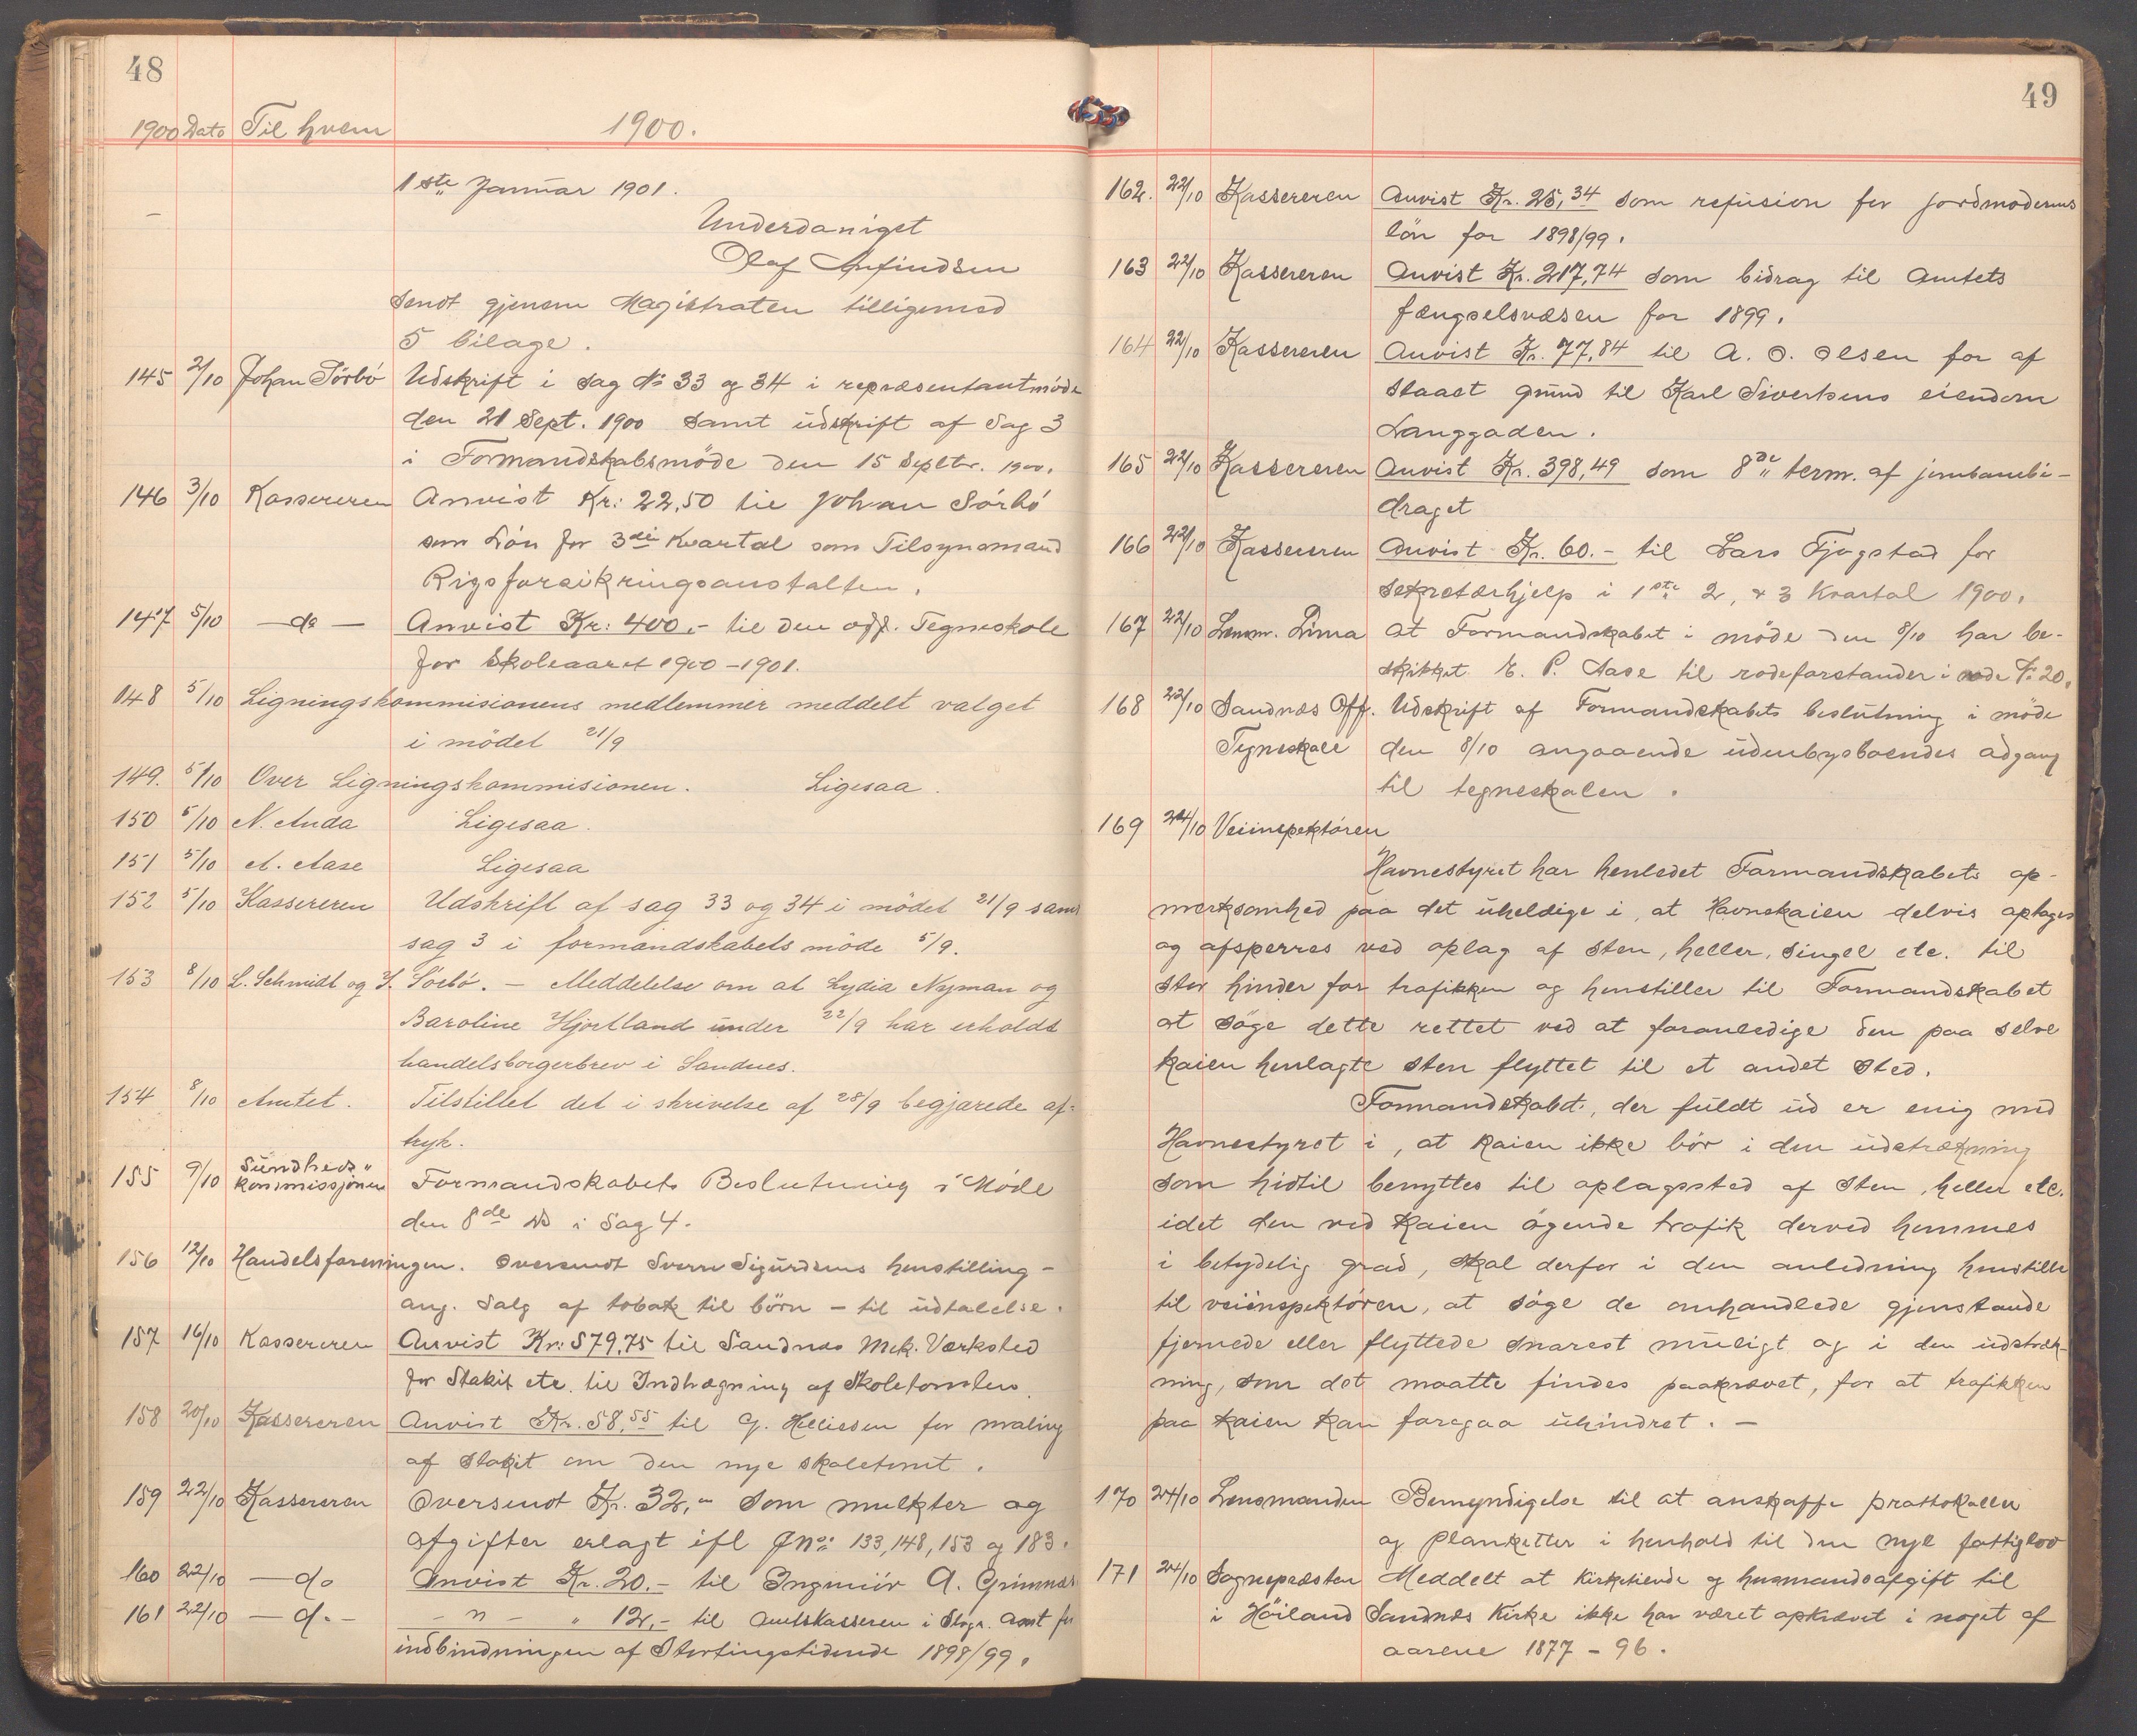 48
1900 Dato Til hvem 1900.
1ste Januar 1901.
Underdanigst
Olaf Anfindsen
Sendt gjenem Magistraten tilligemed
5 bilage.
145 2/10 Johan Sörbö Udskrift i sag No 33 og 34 i repræsentantmöde
den 21 Sept. 1900 samt udskrift af Sag 3
i Formandskabsmöde den 15 Septbr. 1900.
146 3/10 Kassereren Anvist Kr: 22,50 til Johan Sörbö
som Lön for 3die Kvartal som Tilsynsmand
Rigsforsikringsanstalten.
147 5/10 — do — Anvist Kr: 400.- til den off. Tegneskole
for Skoleaaret 1900-1901.
148 5/10 Ligningskommisionens medlemmer meddelt valget
i mödet 21/9
149. 5/10 Over Ligningskommisionen. Ligesaa.
150 5/10 N. Auda Ligesaa.
151 5/10 A. Aase Ligesaa
152 5/10 Kassereren Udskrift af sag 33 og 34 i mödet 21/9 samt
sag 3 i formandskabets möde 5/9.
153 8/10 L. Schmidt og J. Sörbö. — Meddelelse om at Lydia Nyman og
Baroline Hjortland under 22/9 har erholdt
handelsborgerbrev i Sandnes.
154 8/10 Amtet. Tilstillet det i skrivelse af 28/9 begjærede af-
tryk.
155 9/10 Sundheds-
kommissjonen Formandskabets Beslutning i Möde
den 8de ds i Sag 4.
156 12/10 Handelsforeningen. Oversendt Sverre Sigurdsens henstilling -
ang. Salg af tobak til börn - til udtalelse.
157 16/10 Kassereren Anvist Kr: 579,75 til Sandnes Mek. Værksted
for Stakit etc. til Indhegning af Skoletomten.
158 20/10 Kassereren Anvist Kr. 58,55 til G. Helliesen for maling
af stakit om den nye skoletomt.
159 22/10 Kassereren Oversendt Kr. 32,- som mulkter og
afgifter erlagt ifl JNo: 133, 148, 153 og 183.
160 22/10 — do Anvist Kr. 20.- til Ingeniör A. Grimnes
161 22/10 — do - — " — " 12,- til Amtskasseren i Stvgr. Amt for
indbindningen af Stortingstidende 1898/99.
49
162. 22/10 Kassereren Anvist Kr. 25,34 som refusion for jordmoderens
lön for 1898/99.
163 22/10 Kassereren Anvist Kr. 217,74 som bidrag til Amtets
fængselsvæsen for 1899.
164 22/10 Kassereren Anvist Kr. 77,84 til A. O. Olsen for af
staaet grund til Karl Sivertsens eiendom
Langgaden.
165 22/10 Kassereren Anvist Kr. 398,49 som 8de term. af jernbanebi-
draget
166 22/10 Kassereren Anvist Kr. 60.- til Lars Tjogstad for
sekretærhjelp i 1ste 2, & 3 Kvartal 1900.
167 22/10 Lensm. Lima at Formandskabet i möde den 8/10 har be-
skikket E. P. Aase til rodeforstander i rode No 20.
168 22/10 Sandnes Off. Udskrift af Formandskabets beslutning i möde
Tegneskole den 8/10 angaaende udenbysboendes adgang
til tegneskolen.
169 24/10 Veiinspektören
Havnestyret har henledet Formandskabets op-
merksomhed paa det uheldige i, at Havnekaien delvis optages
og afsperres ved oplag af sten, heller, singel etc. til
stor hinder for trafikken og henstiller til Formandskabet
at söge dette rettet ved at foranledige den paa selve
kaien henlagte sten flyttet til et andet sted.
Formandskabet, der fuldt ud er enig med
Havnestyret i, at kaien ikke bör i den udstrækning
som hidtil benyttes til oplagssted af sten, heller etc.
idet den ved kaien ögende trafik derved hemmes
i betydelig grad, skal derfor i den anledning henstille
til veiinspektören, at söge de omhandlede gjenstande
fjernede eller flyttede snarest muligt og i den udstræk-
ning, som det maatte findes paakrævet, for at trafikken
paa kaien kan foregaa uhindret. —
170 24/10 Lensmanden Bemyndigelse til at anskaffe prottokoller
og planketter i henhold til den nye fattiglov
171 24/10 Sognepresten Meddelt at Kirketiende og husmandsafgift til
i Höiland Sandnes Kirke ikke har været opkrævet i noget af
aarene 1877 - 96.